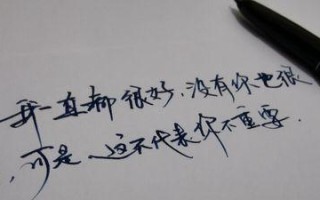 我一直都很好,没有你也很
,可是、这不代表你不重要.